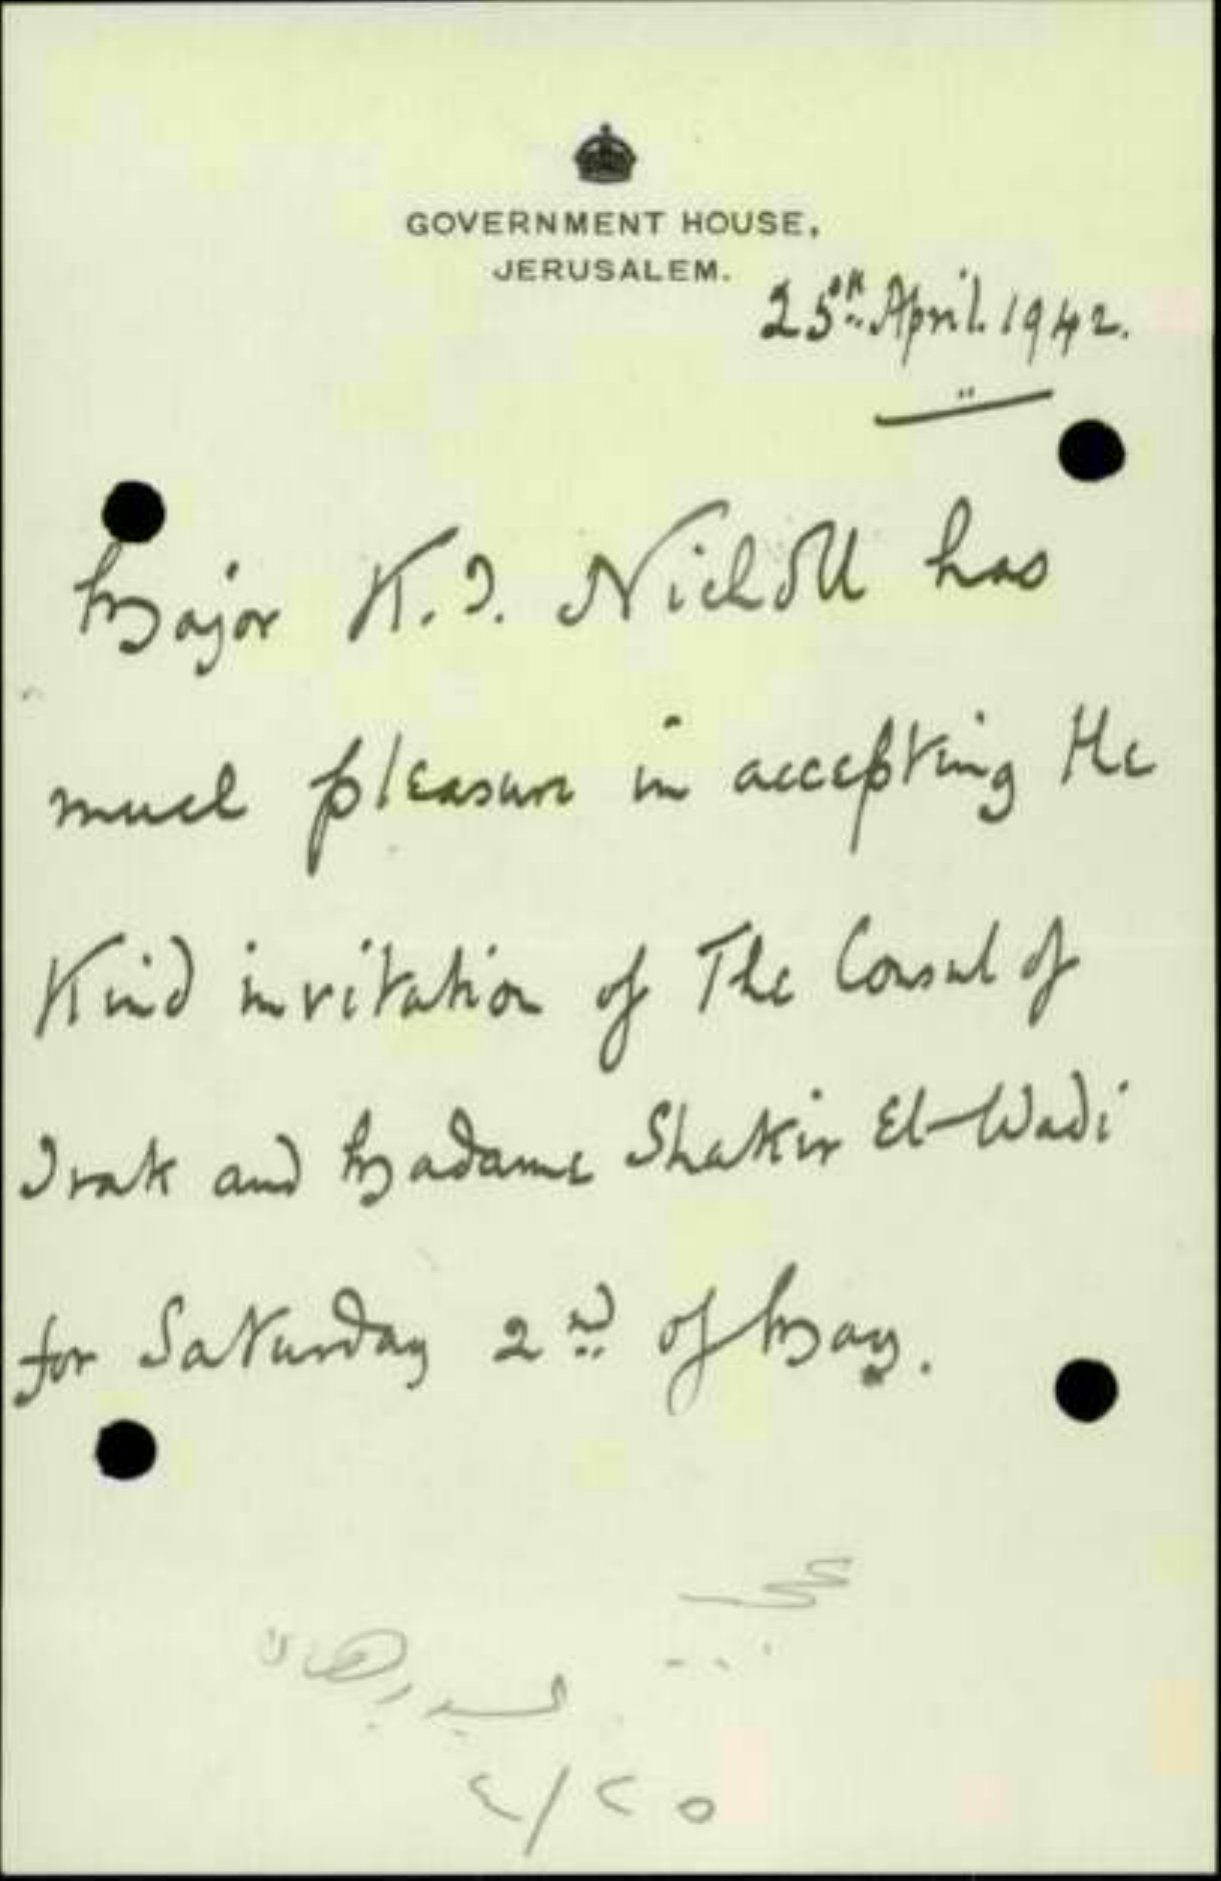 GOVERNMENT HOUSE,
JERUSALEM.
25th April. 1942.
Major K. I. Nicholl has
much pleasure in accepting the
Kind invitation of The Consul of
Irak and Madame Shakir El-Wadi
for Saturday 2nd of May.
٤/٢٥